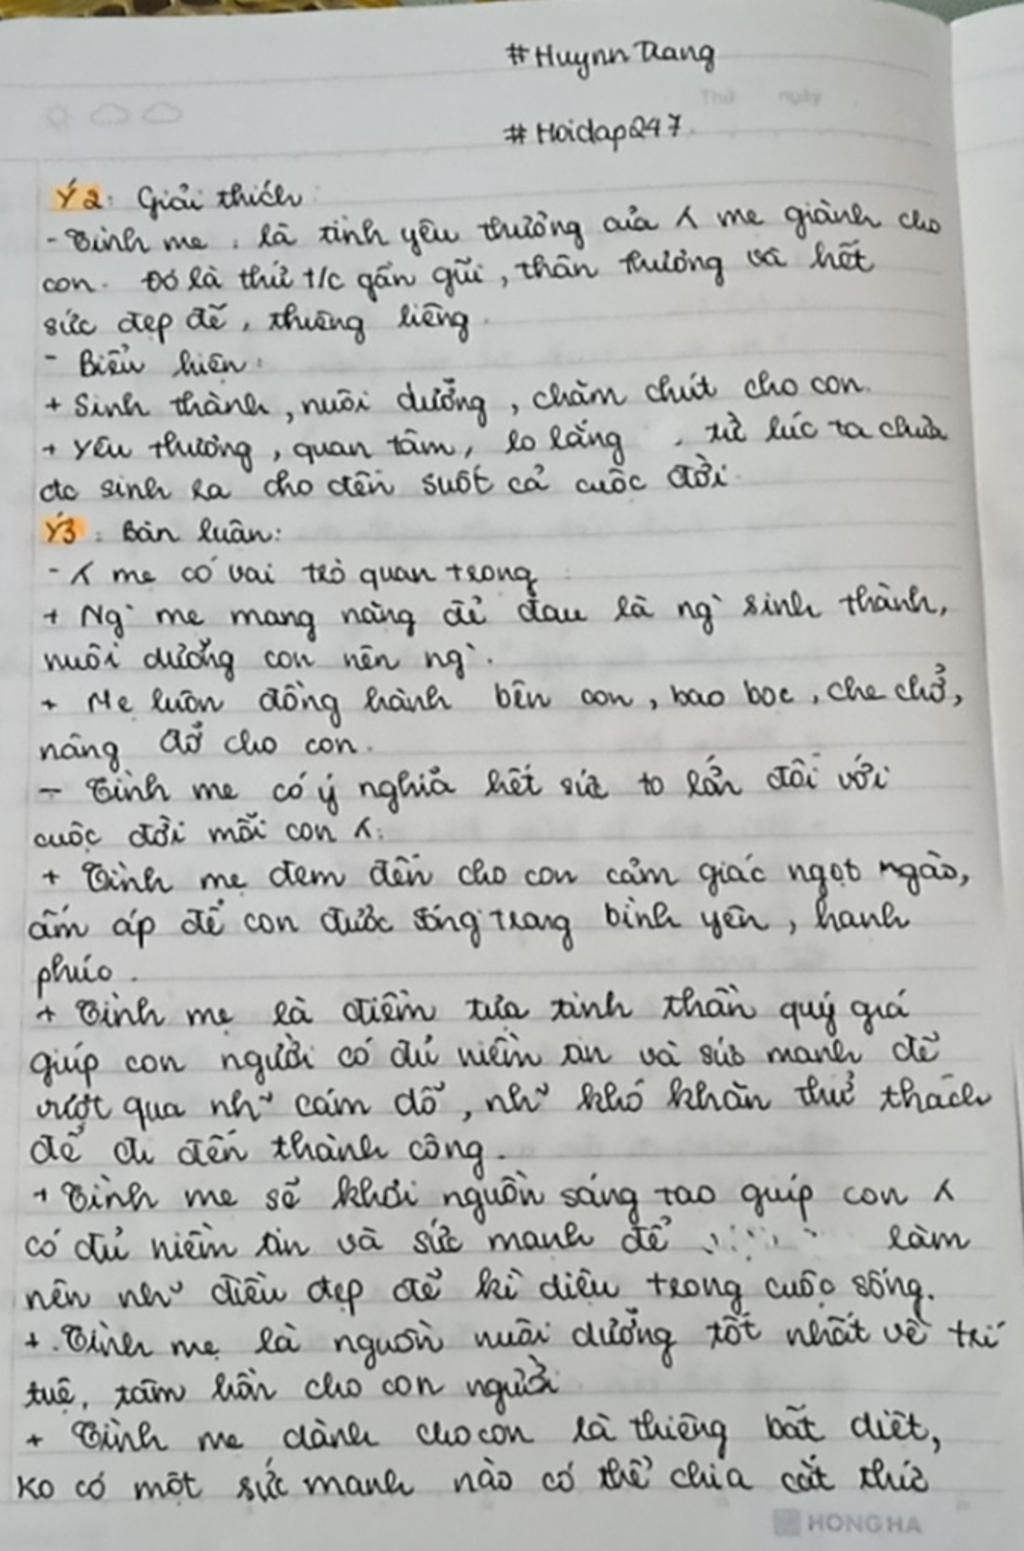 #Huynn Trang
Thứ ngày
#Hoidap247
Ý2: Giải thích:
- Tình mẹ: là tình yêu thương của ʎ mẹ giành cho
con. Đó là thứ t/c gần gũi, thân thương và hết
sức đẹp đẽ, thiêng liêng.
- Biểu hiện:
+ Sinh thành, nuôi dưỡng, chăm chút cho con.
+ Yêu thương, quan tâm, lo lắng, từ lúc ta chưa
đc sinh ra cho đến suốt cả cuộc đời.
Ý3: Bàn luận:
- ʎ mẹ có vai trò quan trọng
+ Ng` mẹ mang nặng đẻ đau là ng` sinh thành,
nuôi dưỡng con nên ng`.
+ Mẹ luôn đồng hành bên con, bao bọc, che chở,
nâng đỡ cho con.
- Tình mẹ có ý nghĩa hết sức to lớn đối với
cuộc đời mỗi con ʎ:
+ Tình mẹ đem đến cho con cảm giác ngọt ngào,
ấm áp để con được sống trong bình yên, hạnh
phúc.
+ Tình mẹ là điểm tựa tinh thần quý giá
giúp con người có đủ niềm tin và sức mạnh để
vượt qua nh~ cám dỗ, nh~ khó khăn thử thách
để đi đến thành công.
+ Tình mẹ sẽ khơi nguồn sáng tạo giúp con ʎ
có đủ niềm tin và sức mạnh để làm
nên nh~ điều đẹp đẽ kì diệu trong cuộc sống.
+ Tình mẹ là nguồn nuôi dưỡng tốt nhất về trí
tuệ, tâm hồn cho con người
+ Tình mẹ dành cho con là thiêng bất diệt,
ko có một sức mạnh nào có thể chia cắt thứ
HONG HA